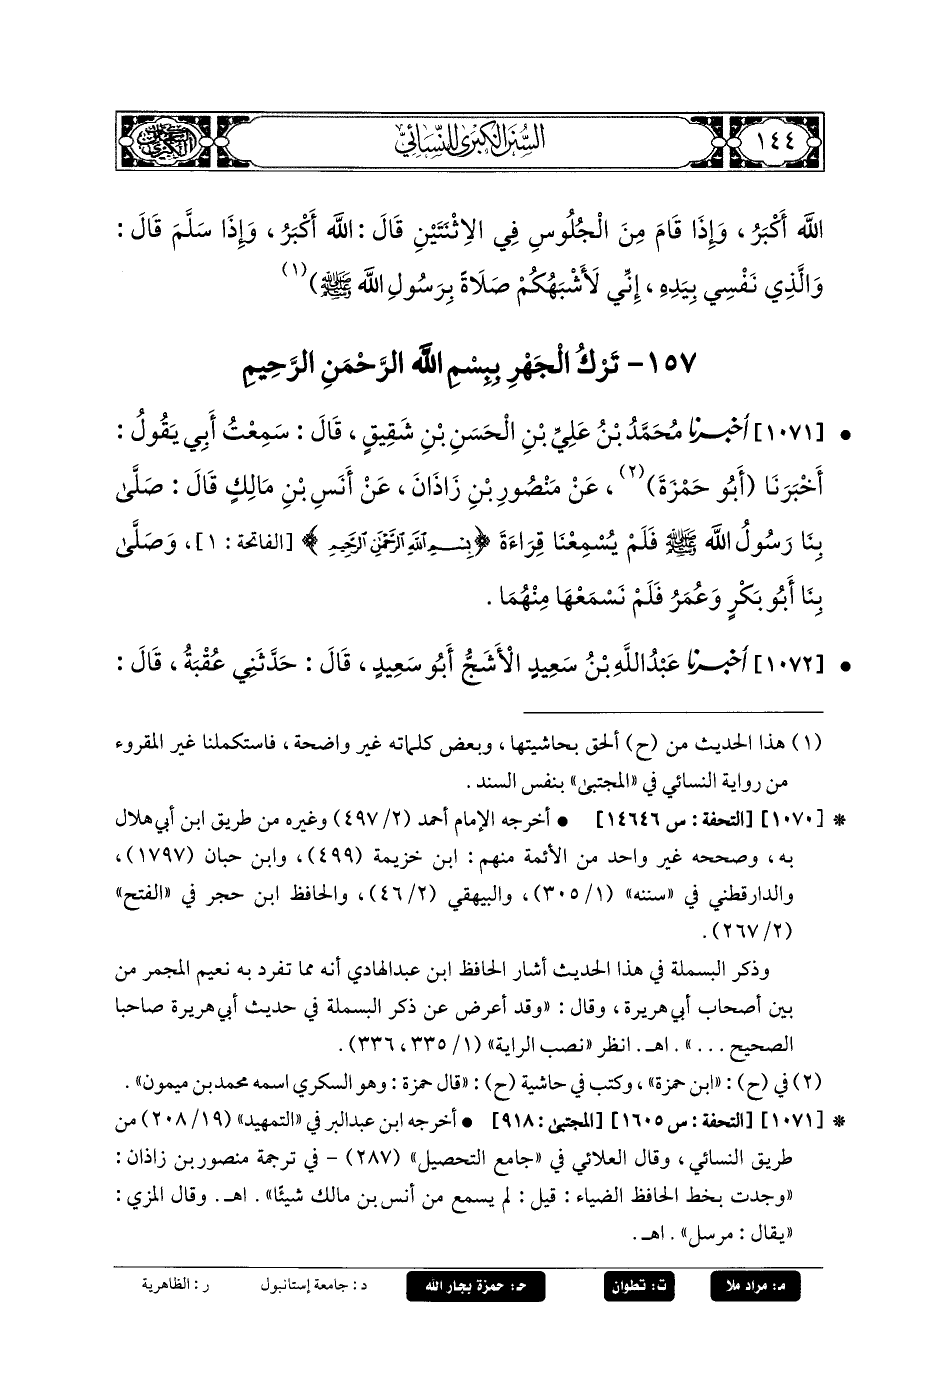 ١٤٤
السُّنَنُ الكُبْرَى لِلنَّسَائِيّ
اللَّه أَكْبَرُ ، وَإِذَا قَامَ مِنَ الْجُلُوسِ فِي الِاثْنَتَيْنِ قَالَ : اللَّه أَكْبَرُ ، وَإِذَا سَلَّمَ قَالَ :
وَالَّذِي نَفْسِي بِيَدِهِ ، إِنِّي لَأَشْبَهُكُمْ صَلَاةً بِرَسُولِ اللَّه ﷺ) (١)
١٥٧ - تَرْكُ الْجَهْرِ بِبِسْمِ اللَّه الرَّحْمَنِ الرَّحِيمِ
• [١٠٧١] أخبرنا مُحَمَّدُ بْنُ عَلِيِّ بْنِ الْحَسَنِ بْنِ شَقِيقٍ ، قَالَ : سَمِعْتُ أَبِي يَقُولُ :
أَخْبَرَنَا (أَبُو حَمْزَةَ) (٢) ، عَنْ مَنْصُورِ بْنِ زَاذَانَ ، عَنْ أَنَسِ بْنِ مَالِكٍ قَالَ : صَلَّى
بِنَا رَسُولُ اللَّه ﷺ فَلَمْ يُسْمِعْنَا قِرَاءَةَ ﴿بِسْمِ ٱللَّهِ ٱلرَّحْمَٰنِ ٱلرَّحِيمِ﴾ [الفاتحة : ١] ، وَصَلَّى
بِنَا أَبُو بَكْرٍ وَعُمَرُ فَلَمْ نَسْمَعْهَا مِنْهُمَا .
• [١٠٧٢] أخبرنا عَبْدُ اللَّهِ بْنُ سَعِيدٍ الْأَشَجُّ أَبُو سَعِيدٍ ، قَالَ : حَدَّثَنِي عُقْبَةُ ، قَالَ :
(١) هذا الحديث من (ح) ألحق بحاشيتها ، وبعض كلماته غير واضحة ، فاستكملنا غير المقروء
من رواية النسائي في «المجتبى» بنفس السند .
* [١٠٧٠] [التحفة : س ١٤٦٤٦] • أخرجه الإمام أحمد (٢/ ٤٩٧) وغيره من طريق ابن أبي هلال
به ، وصححه غير واحد من الأئمة منهم : ابن خزيمة (٤٩٩) ، وابن حبان (١٧٩٧) ،
والدارقطني في «سننه» (١/ ٣٠٥) ، والبيهقي (٢/ ٤٦) ، والحافظ ابن حجر في «الفتح»
(٢/ ٢٦٧) .
وذكر البسملة في هذا الحديث أشار الحافظ ابن عبدالهادي أنه مما تفرد به نعيم المجمر من
بين أصحاب أبي هريرة ، وقال : «وقد أعرض عن ذكر البسملة في حديث أبي هريرة صاحبا
الصحيح . . . » . اهـ . انظر «نصب الراية» (١/ ٣٣٥ ، ٣٣٦) .
(٢) في (ح) : «ابن حمزة» ، وكتب في حاشية (ح) : «قال حمزة : وهو السكري اسمه محمد بن ميمون» .
* [١٠٧١] [التحفة : س ١٦٠٥] [المجتبى : ٩١٨] • أخرجه ابن عبدالبر في «التمهيد» (١٩/ ٢٠٨) من
طريق النسائي ، وقال العلائي في «جامع التحصيل» (٢٨٧) - في ترجمة منصور بن زاذان :
«وجدت بخط الحافظ الضياء : قيل : لم يسمع من أنس بن مالك شيئًا» . اهـ . وقال المزي :
«يقال : مرسل» . اهـ .
م: مراد ملا ت: تطوان ح: حمزة بجار الله د: جامعة إستانبول ر: الظاهرية